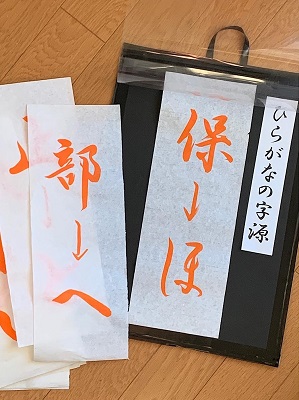 ひらがなの字源
保→ほ
部→へ